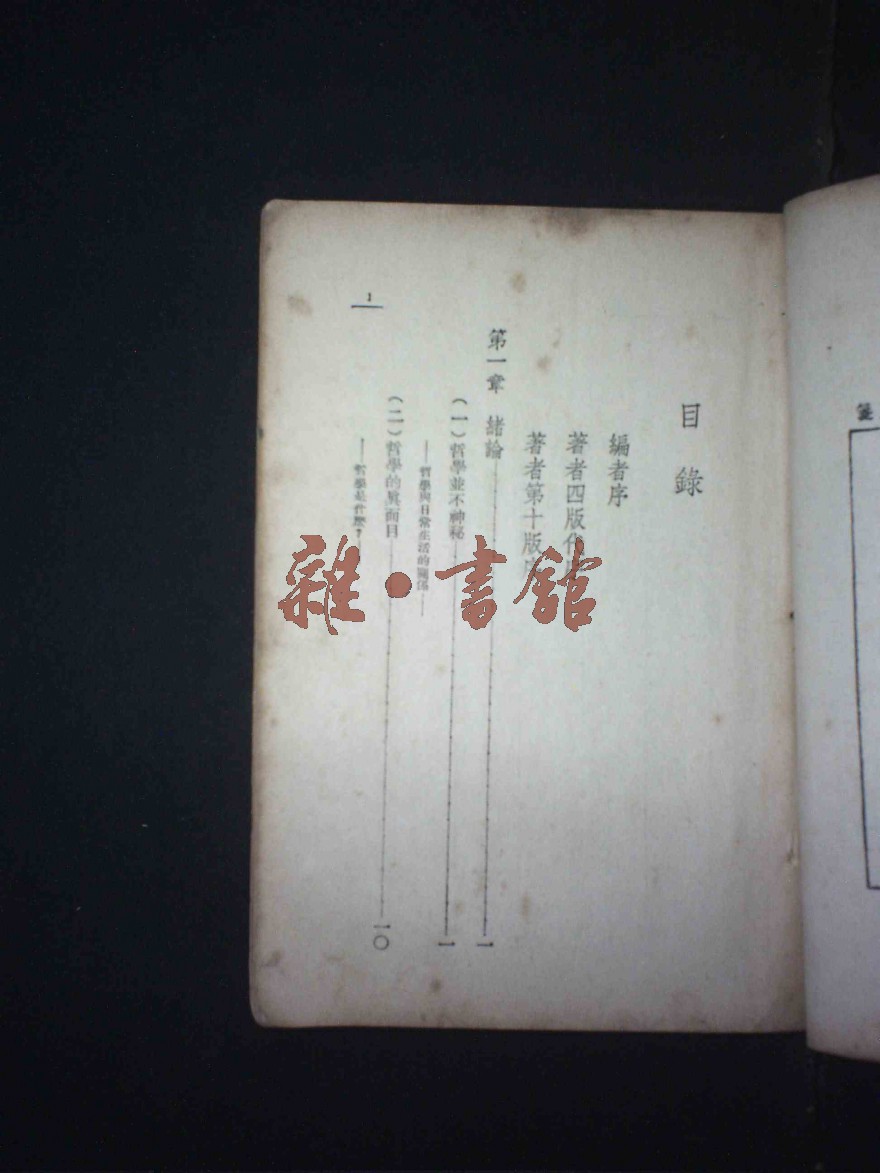 目錄
編者序
著者四版代序
著者第十版序
第一章 緒論 一
（一）哲學並不神秘 一
——哲學與日常生活的關係——
（二）哲學的眞面目 一〇
——哲學是什麼？——
1
雜·書館